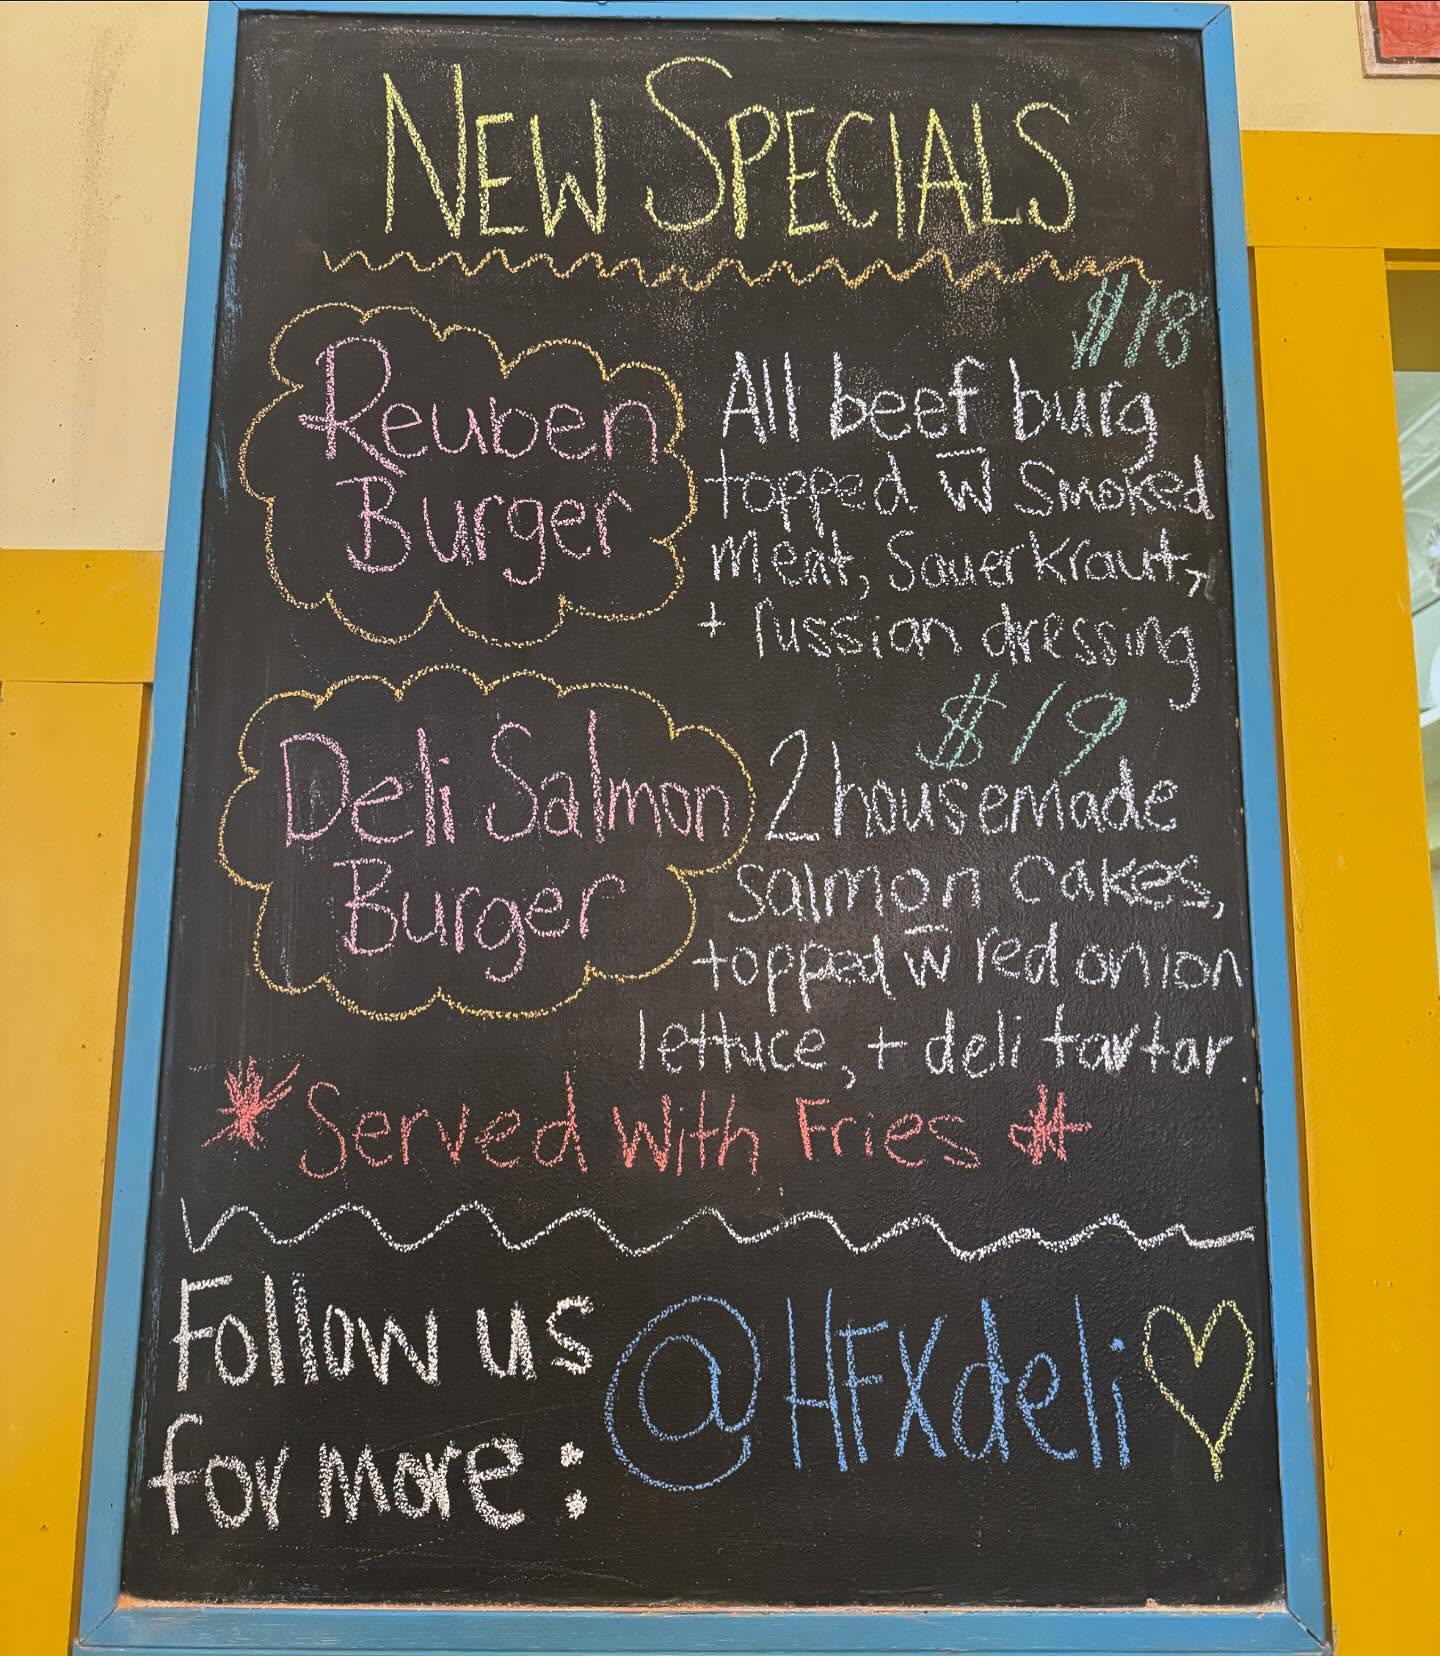 NEW SPECIALS
$18
Reuben
Burger
All beef burg
topped w̅ smoked
meat, sauerkraut,
+ russian dressing
$19
Deli Salmon
Burger
2 housemade
salmon cakes,
topped w̅ red onion
lettuce, + deli tartar.
*Served with Fries *
Follow us
for more:
@HFXdeli